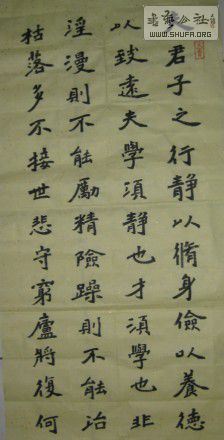 君子之行静以脩身儉以養德
以致遠夫學須静也才須學也非
淫漫則不能勵精險躁則不能冶
枯落多不接世悲守窮廬將復何
WWW.SHUFA.ORG